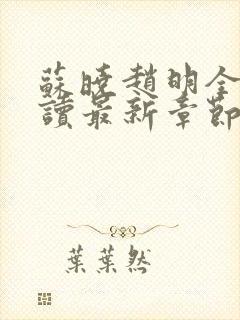 蘇曉趙明全
讀最新章節
葉葉然